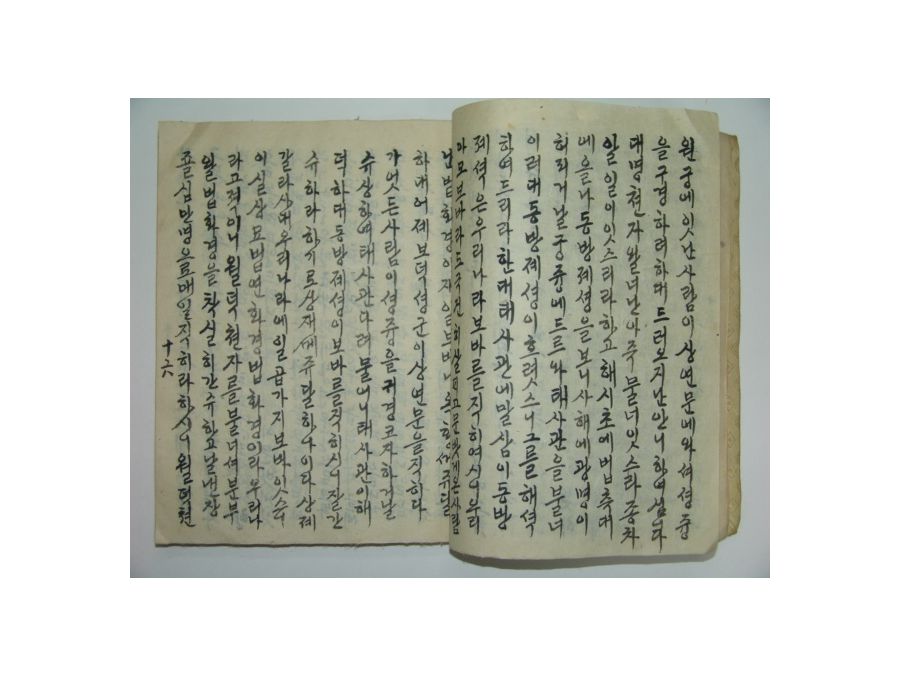 원궁에잇난사람이상연문에와셔셩즁
을구경하려하대드러오지난안니하엿삽다
대명쳔자왈너난아즉물너잇스라종차
알일이잇스리라하고해시초에법츅대
에을나동방졔셩을보니사해에광명이
허리거날궁즁에드르와태사관을불너
이러대동방졔셩이흐렷스니그를해셕
하여드리라한대태사관에말삼이동방
졔셕은우리나라보바를직히여시니우리
하대어졔보덕셩군이상연문을직하다
가엇든사람이셩즁을귀경코자하거날
슈상하여태사관다려물으니태사관이해
덕하대동방졔셩이보바를직히시니잘간
슈하라하기로상재께쥬달하나이다상졔
갈라사대우리나라에일곱가지보바잇스니
이실상묘법연화경법화경이라우리나
라고젹이니월덕쳔자를불너셔분부
왈법화경을착실히간슈하고날낸장
졸십만명으로매일직히라하시니월덕쳔
十六